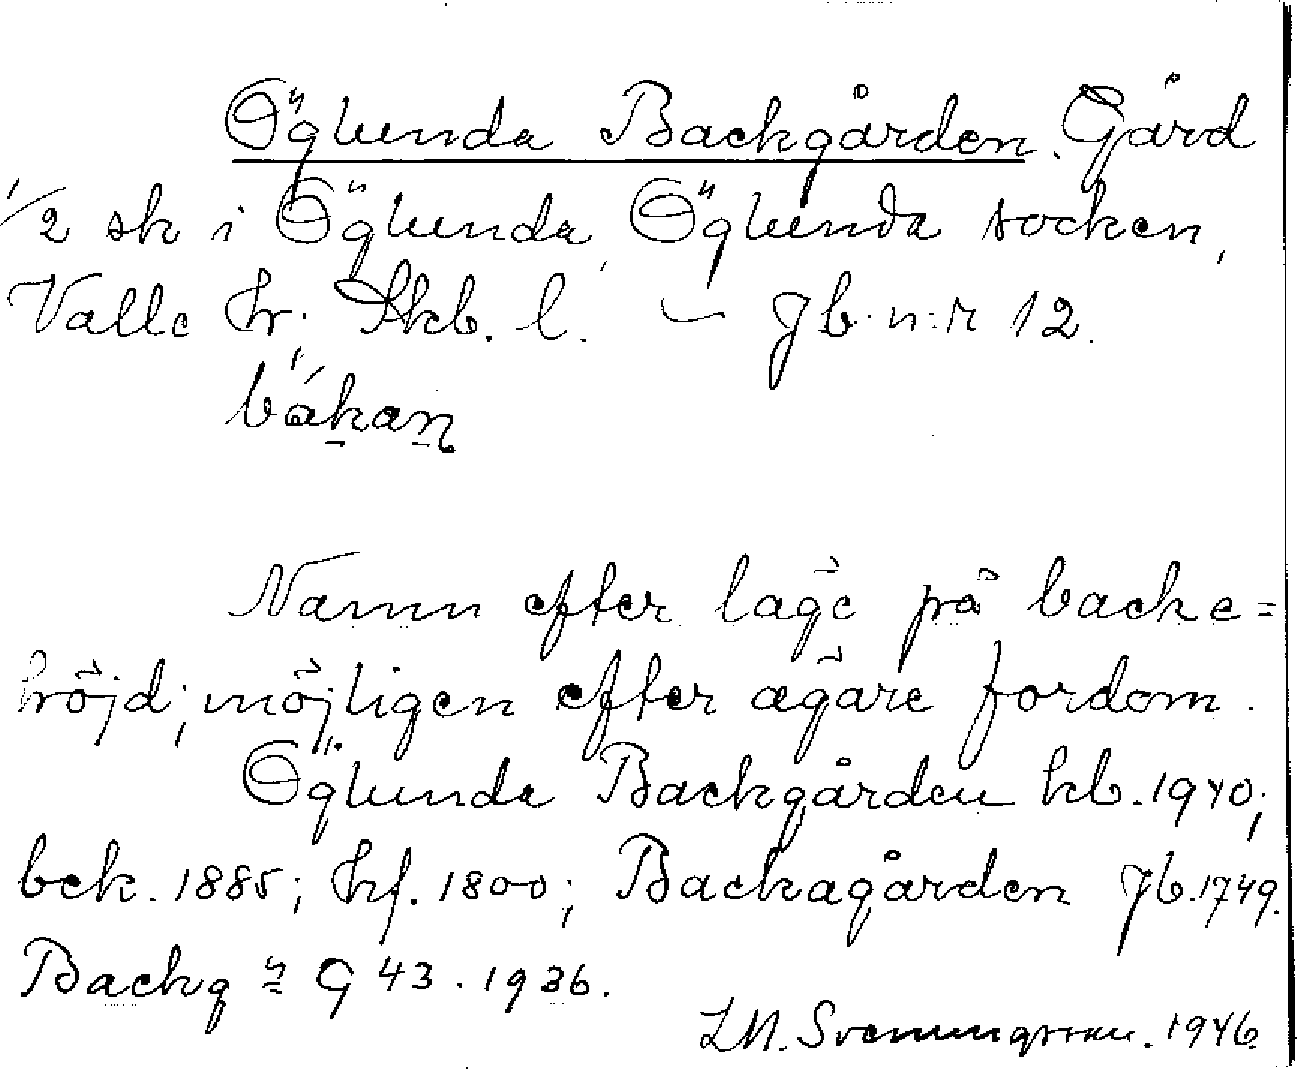 Öglunda Backgården. Gård
1/2 sk i Öglunda, Öglunda socken,
Valle hr; Skb. l. — Jb. n:r 12.
bákan
Namn efter läge på backe=
höjd; möjligen efter ägare fordom.
Öglunda Backgården kb. 1940;
bek. 1885; hf. 1800; Backagården Jb. 1749.
Backg n G 43. 1936.
LM. Svenungsson. 1946